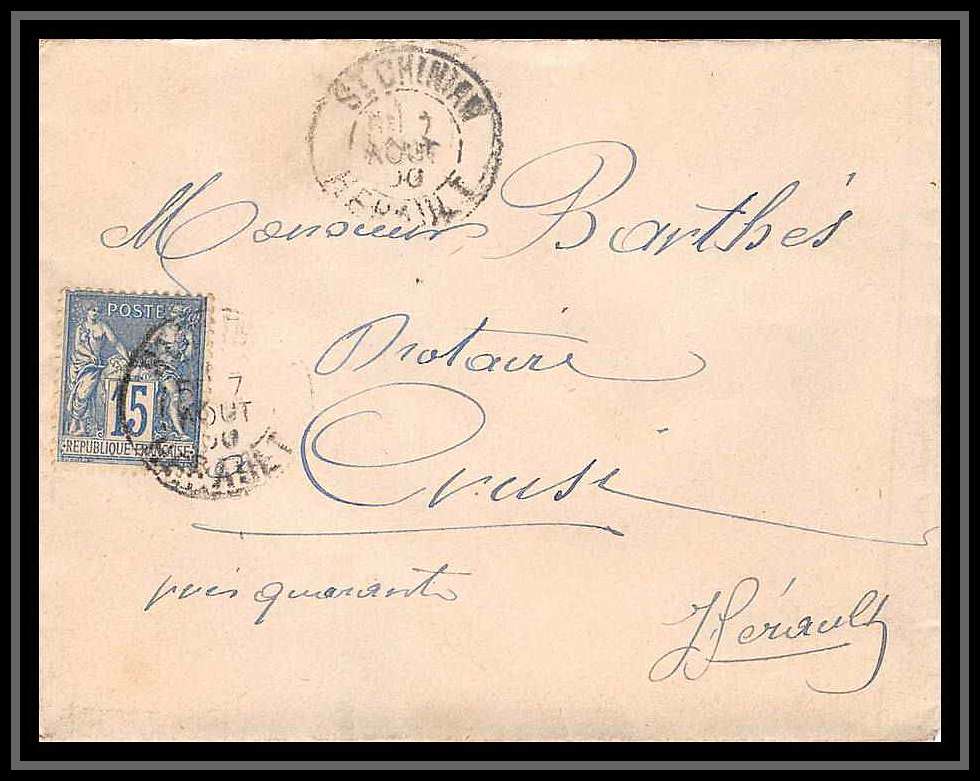 St CHINIAN
7
AOUT
00
HERAULT
Monsieur Barthés
POSTE
Notaire
15
7
AOUT
00
REPUBLIQUE FRANÇAISE
HERAULT
Crusi
près quarante
Hérault